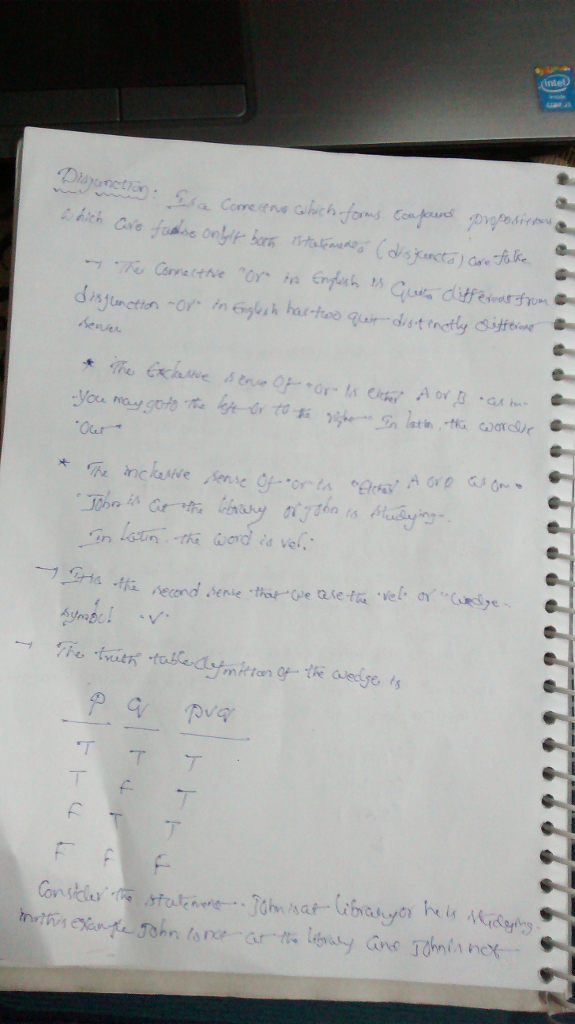 intel
inside
CORE i3
Disjunction: Is a connective which forms compound propositions
which are false only if both statements (disjuncts) are false
→ The Connective "Or" in English is Quite different from
disjunction "Or" in English has two quite distinctly different
senses
* The Exclusive sense Of "or" is either A or B as in
you may go to the left or to the right" In latin, the word is
"Out"
* The inclusive sense Of "or is "Either A or B as in
"John is at the library or John is studying".
In latin the word is vel.
→ It is the second sense that we use the "vel" or "wedge"
symbol "v"
→ The truth table definition of the wedge is
P Q PvQ
T T T
T F T
F T T
F F F
Consider the statement John is at library or he is studying.
in this example John is not at the library and John is not